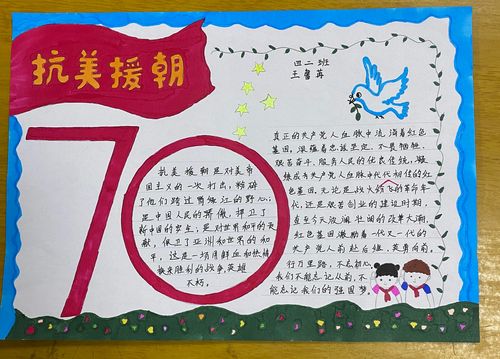 抗美援朝
四二班
王鲁苒
70
抗美援朝是对美帝
国主义的一次打击,粉碎
了他们跨过鸭绿江的野心,
是中国人民的骄傲,捍卫了
新中国的安全,是对世界和平的贡
献,保卫了亚洲和世界的和
平,这是一场用鲜血和热情
换来胜利的战争,英雄
不朽。
真正的共产党人血脉中流淌着红色
基因,深蕴着忠诚坚定、不畏牺牲、
艰苦奋斗、服务人民的优良传统,凝
练成为共产党人血脉中代代相传的红
色基因。无论是战火纷飞的革命年
代,还是艰苦创业的建设时期,
直至今天波澜壮阔的改革大潮,
红色基因激励着一代又一代的
共产党人前赴后继,英勇向前。
行万里路,不忘初心,
我们不能忘记从前,不
能忘记我们的强国梦。